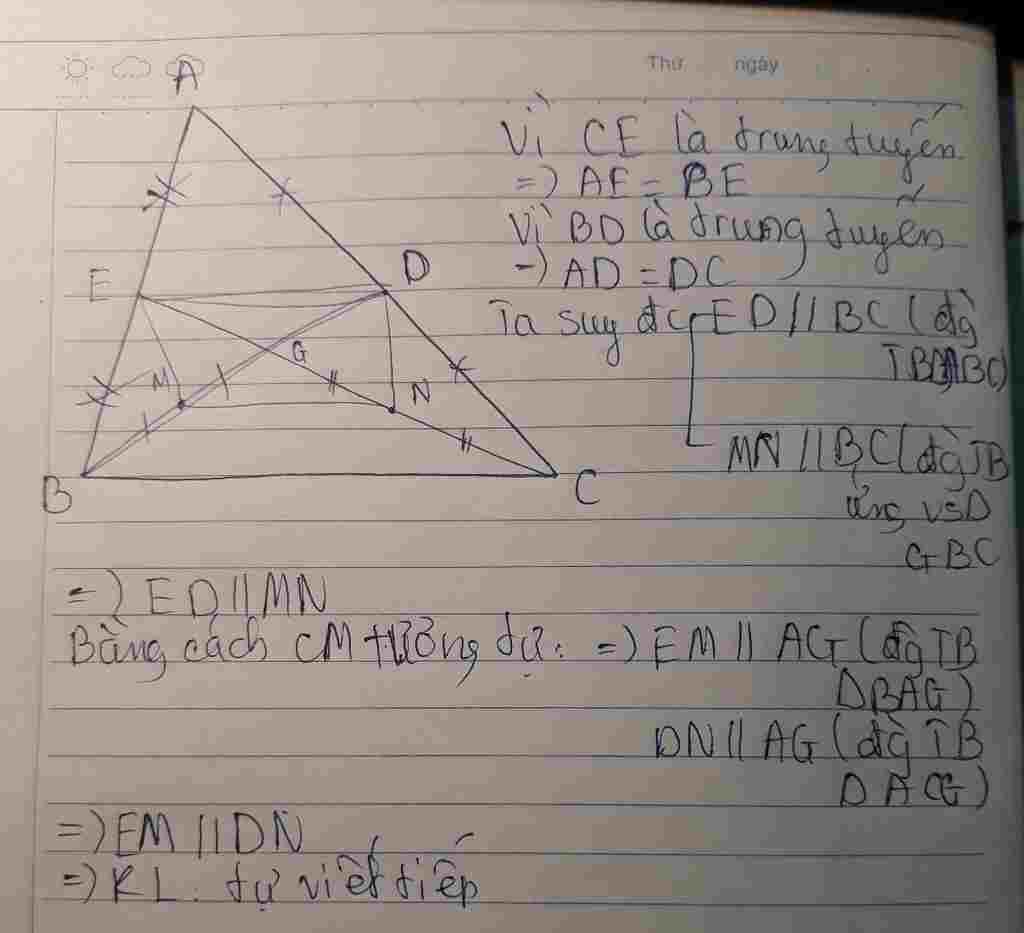 Thứ ngày
A
Vì CE là trung tuyến
=) AE = BE
Vì BD là trung tuyến
=) AD = DC
E
D
Ta suy đc ED // BC (đg
TB ΔABC)
G
M
N
MN // BC (đg TB
ứng vs Δ
GBC
B
C
=) ED // MN
Bằng cách CM tương tự: =) EM // AG (đg TB
ΔBAG)
DN // AG (đg TB
ΔACG)
=) EM // DN
=) KL: tự viết tiếp